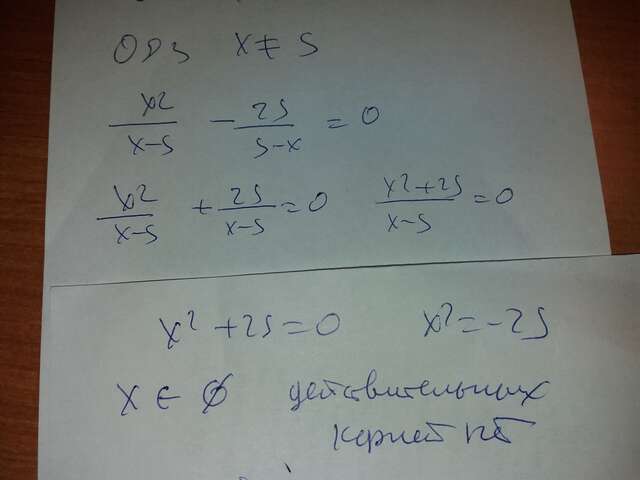 ОДЗ x ≠ 5
x²/x-5 - 25/5-x = 0
x²/x-5 + 25/x-5 = 0 x²+25/x-5 = 0
x² + 25 = 0 x² = -25
x ∈ ∅ действительных
корней нет